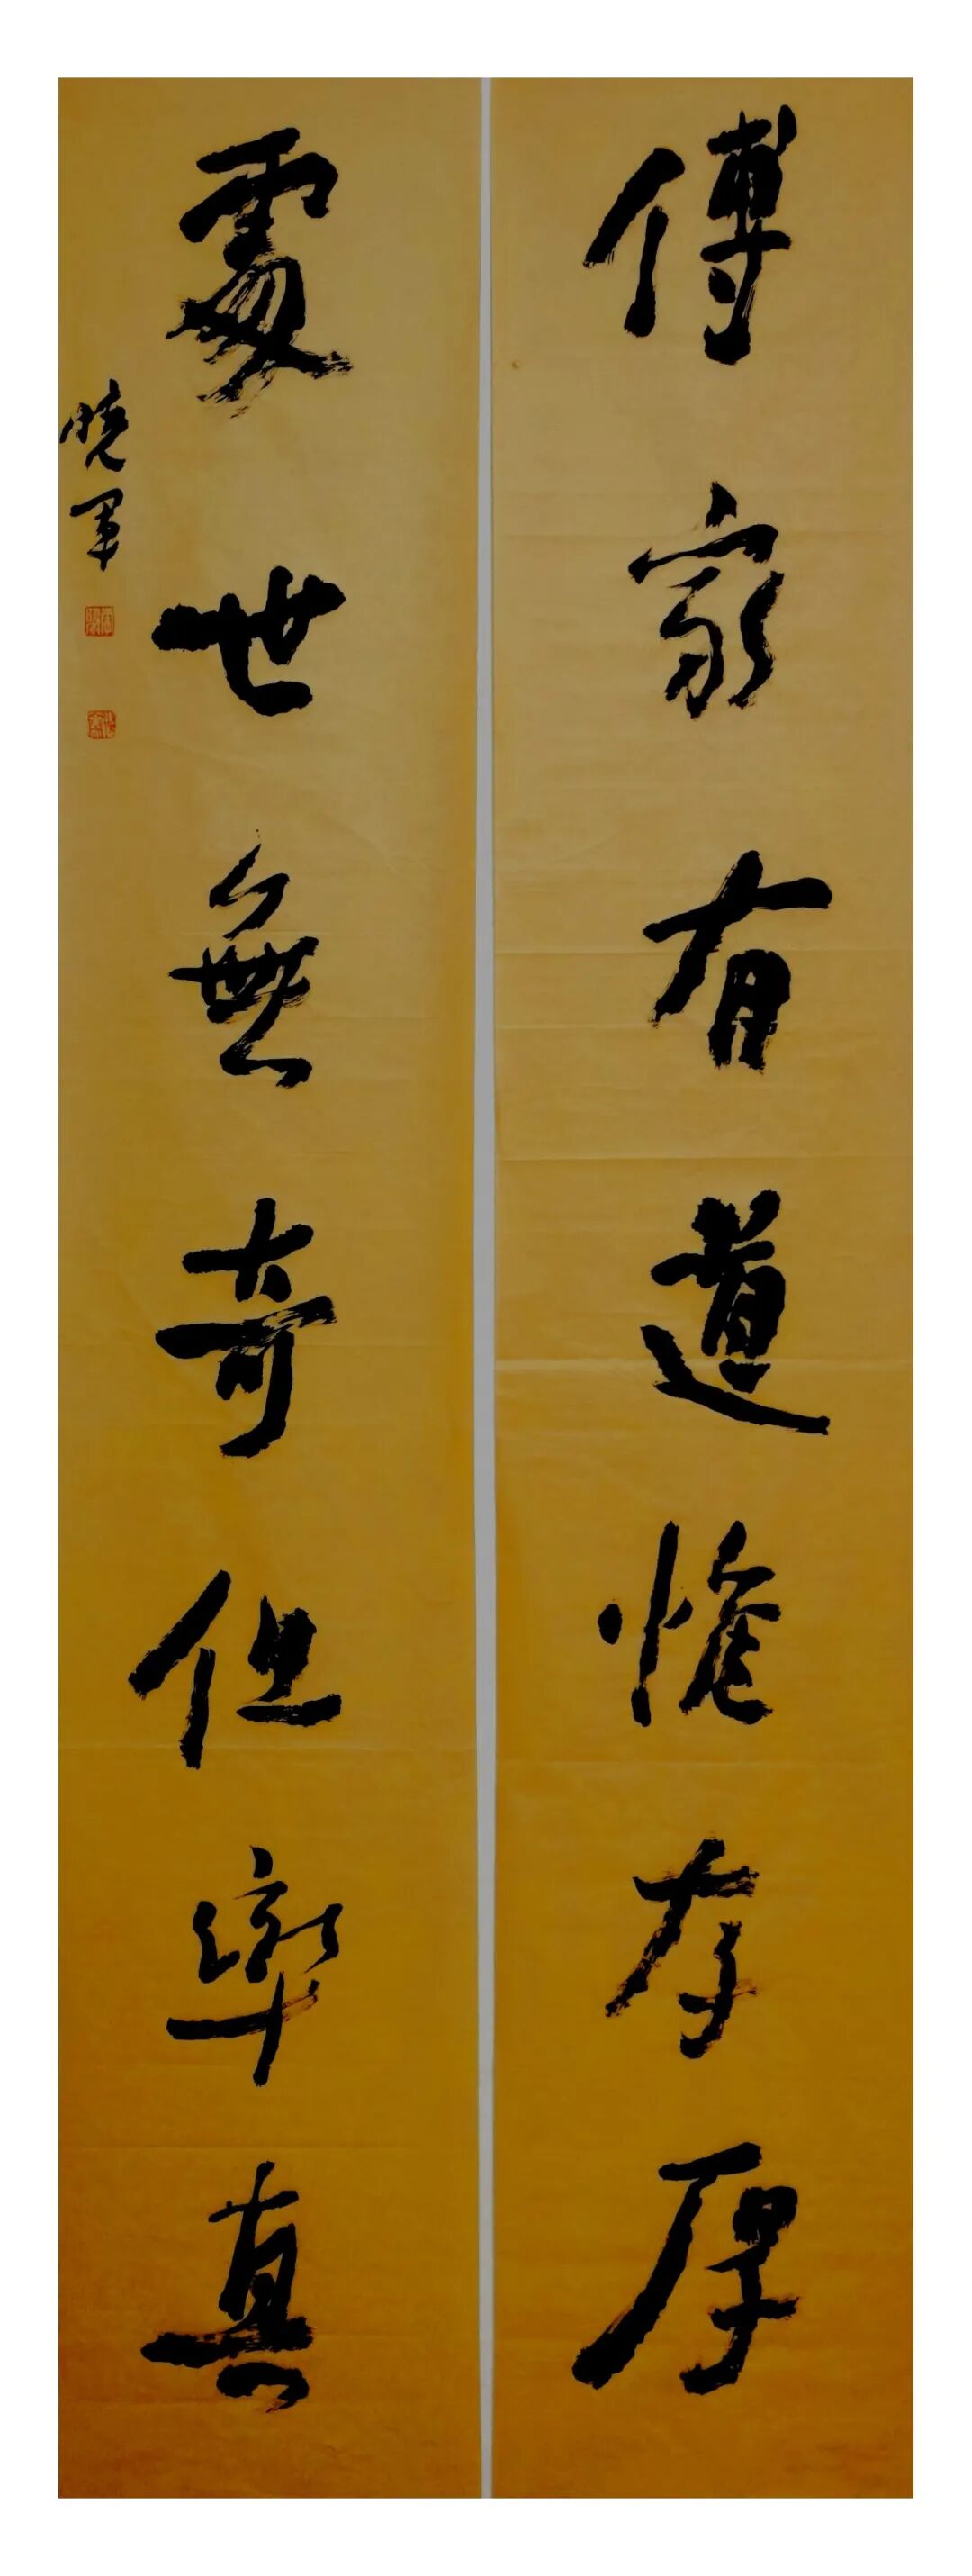 傳家有道惟存厚
處世無奇但率真
曉軍